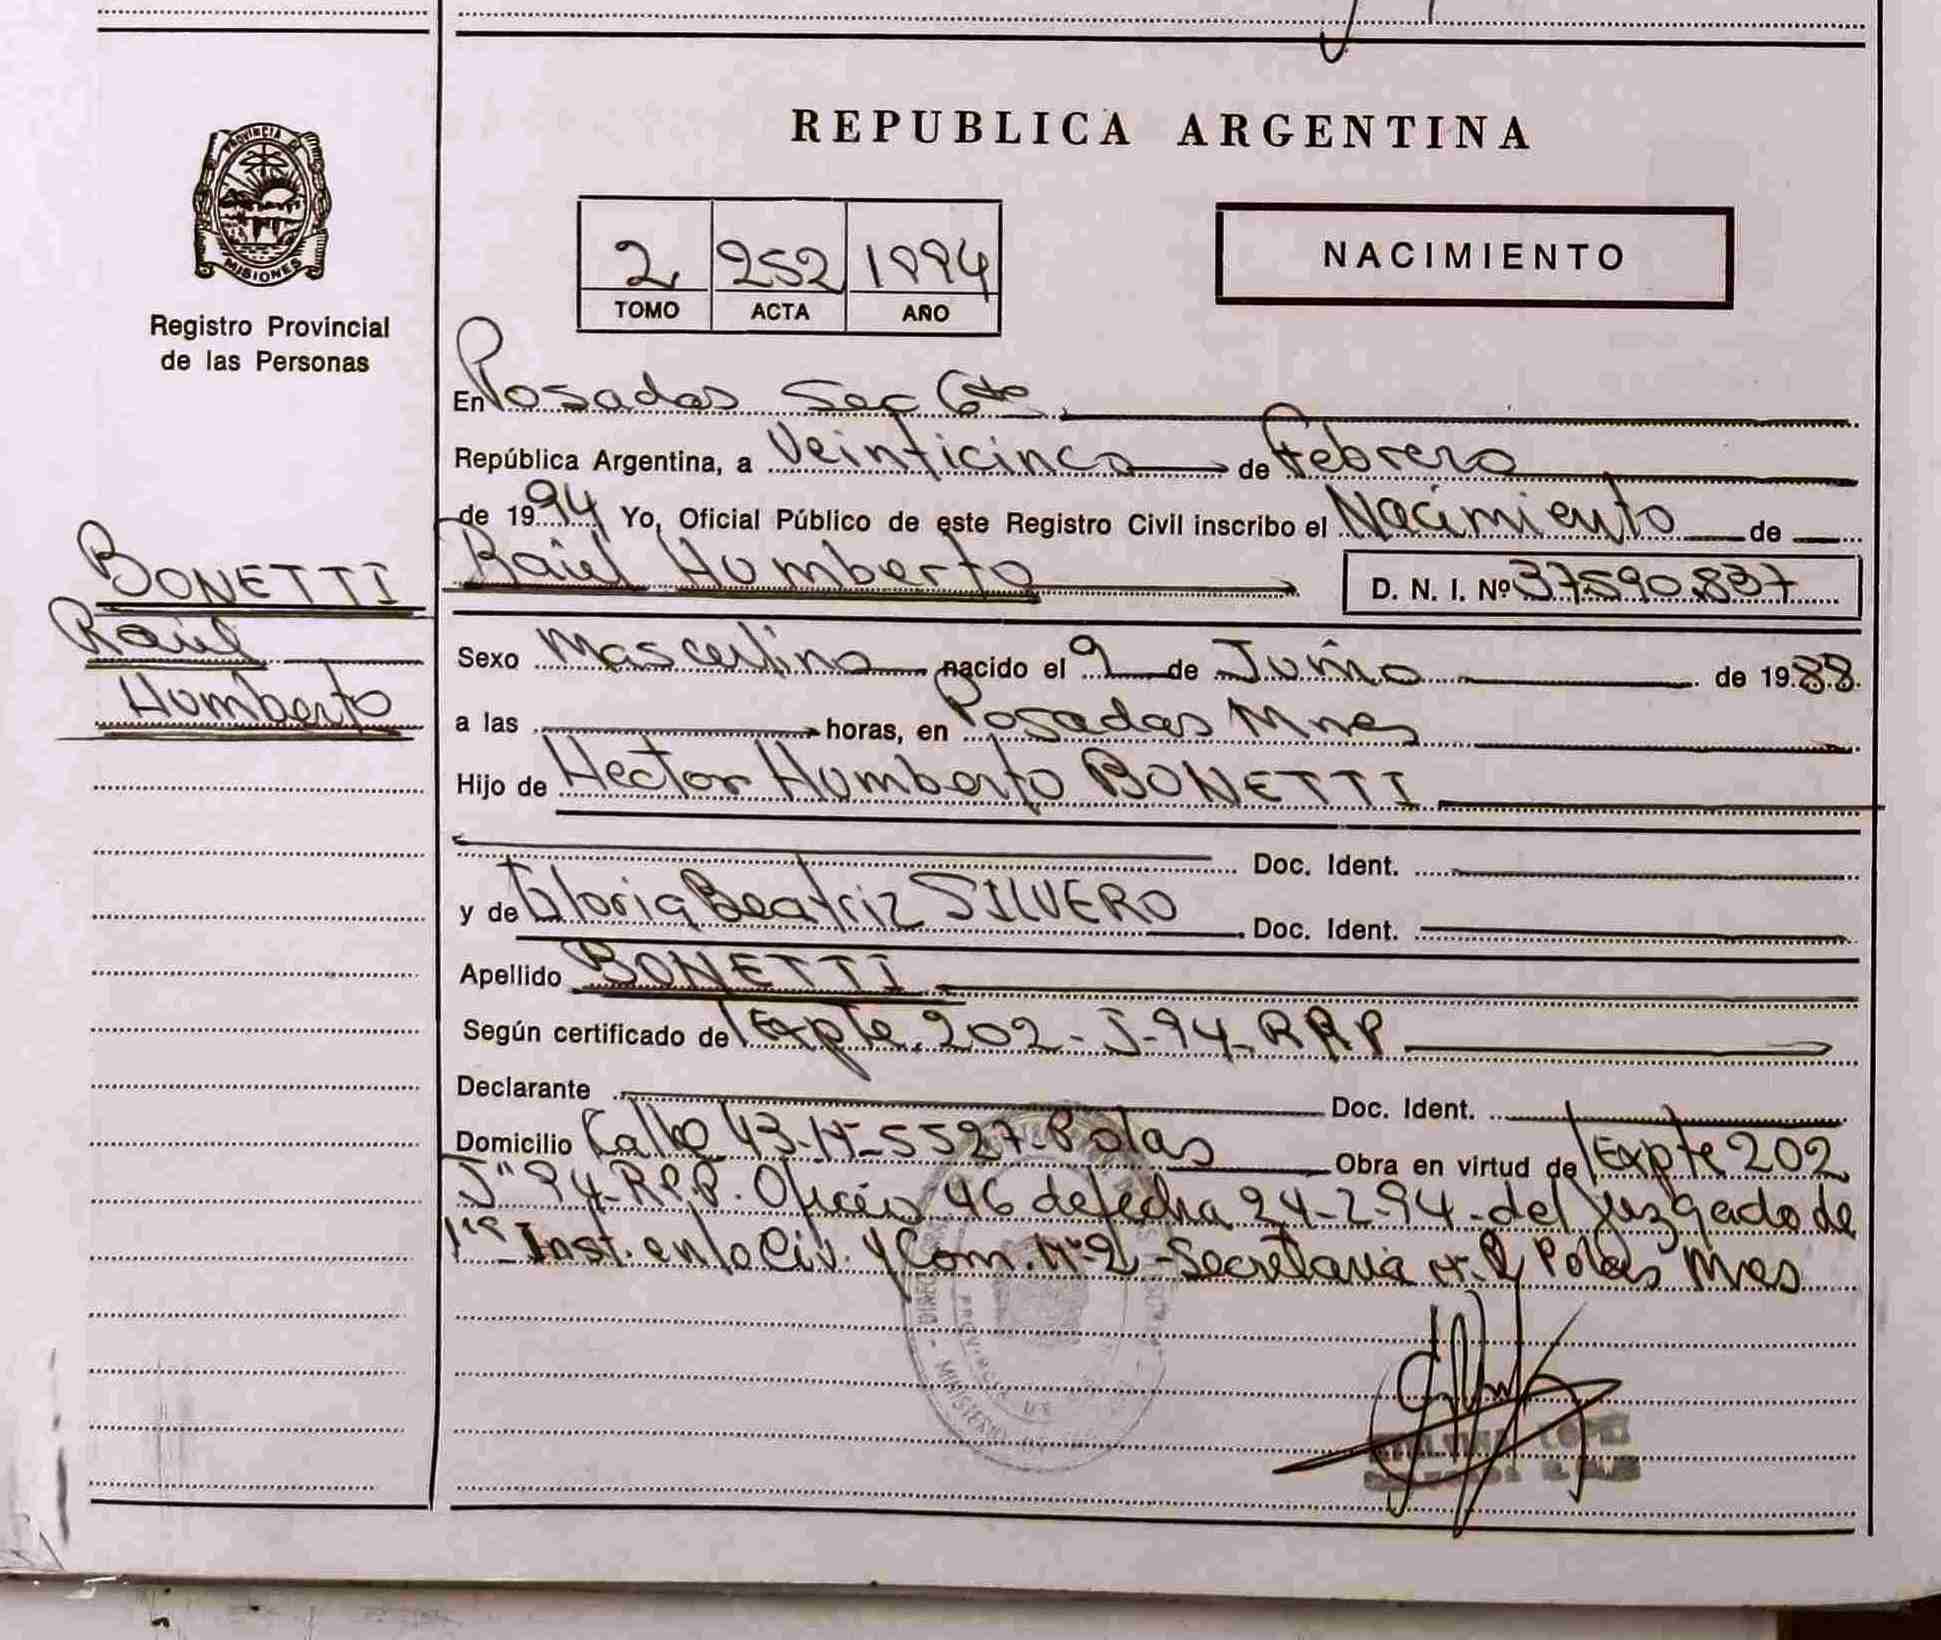 PROVINCIA DE
MISIONES
Registro Provincial
de las Personas
BONETTI
Raúl
Humberto
REPUBLICA ARGENTINA
2 252 1994
TOMO ACTA AÑO
NACIMIENTO
En Posadas Sec 6ta
República Argentina, a Veinticinco de Febrero
de 1994 Yo, Oficial Público de este Registro Civil inscribo el Nacimiento de
Raúl Humberto D. N. I. Nº 37590.837
Sexo Masculino nacido el 9 de Junio de 1988
a las horas, en Posadas Mnes
Hijo de Hector Humberto BONETTI
Doc. Ident.
y de Gloria Beatriz SILVERO Doc. Ident.
Apellido BONETTI
Según certificado de Expte. 202-J-94-RPP
Declarante Doc. Ident.
Domicilio Calle 43-Nº 5527-Pdas Obra en virtud de Expte 202
"J" 94-R.P.P. Oficio 46 de fecha 24-2-94-del Juzgado de
1ra Inst. en lo Civ. y Com. Nº 2-Secretaria Nº 2 Pdas Mnes
LOPEZ